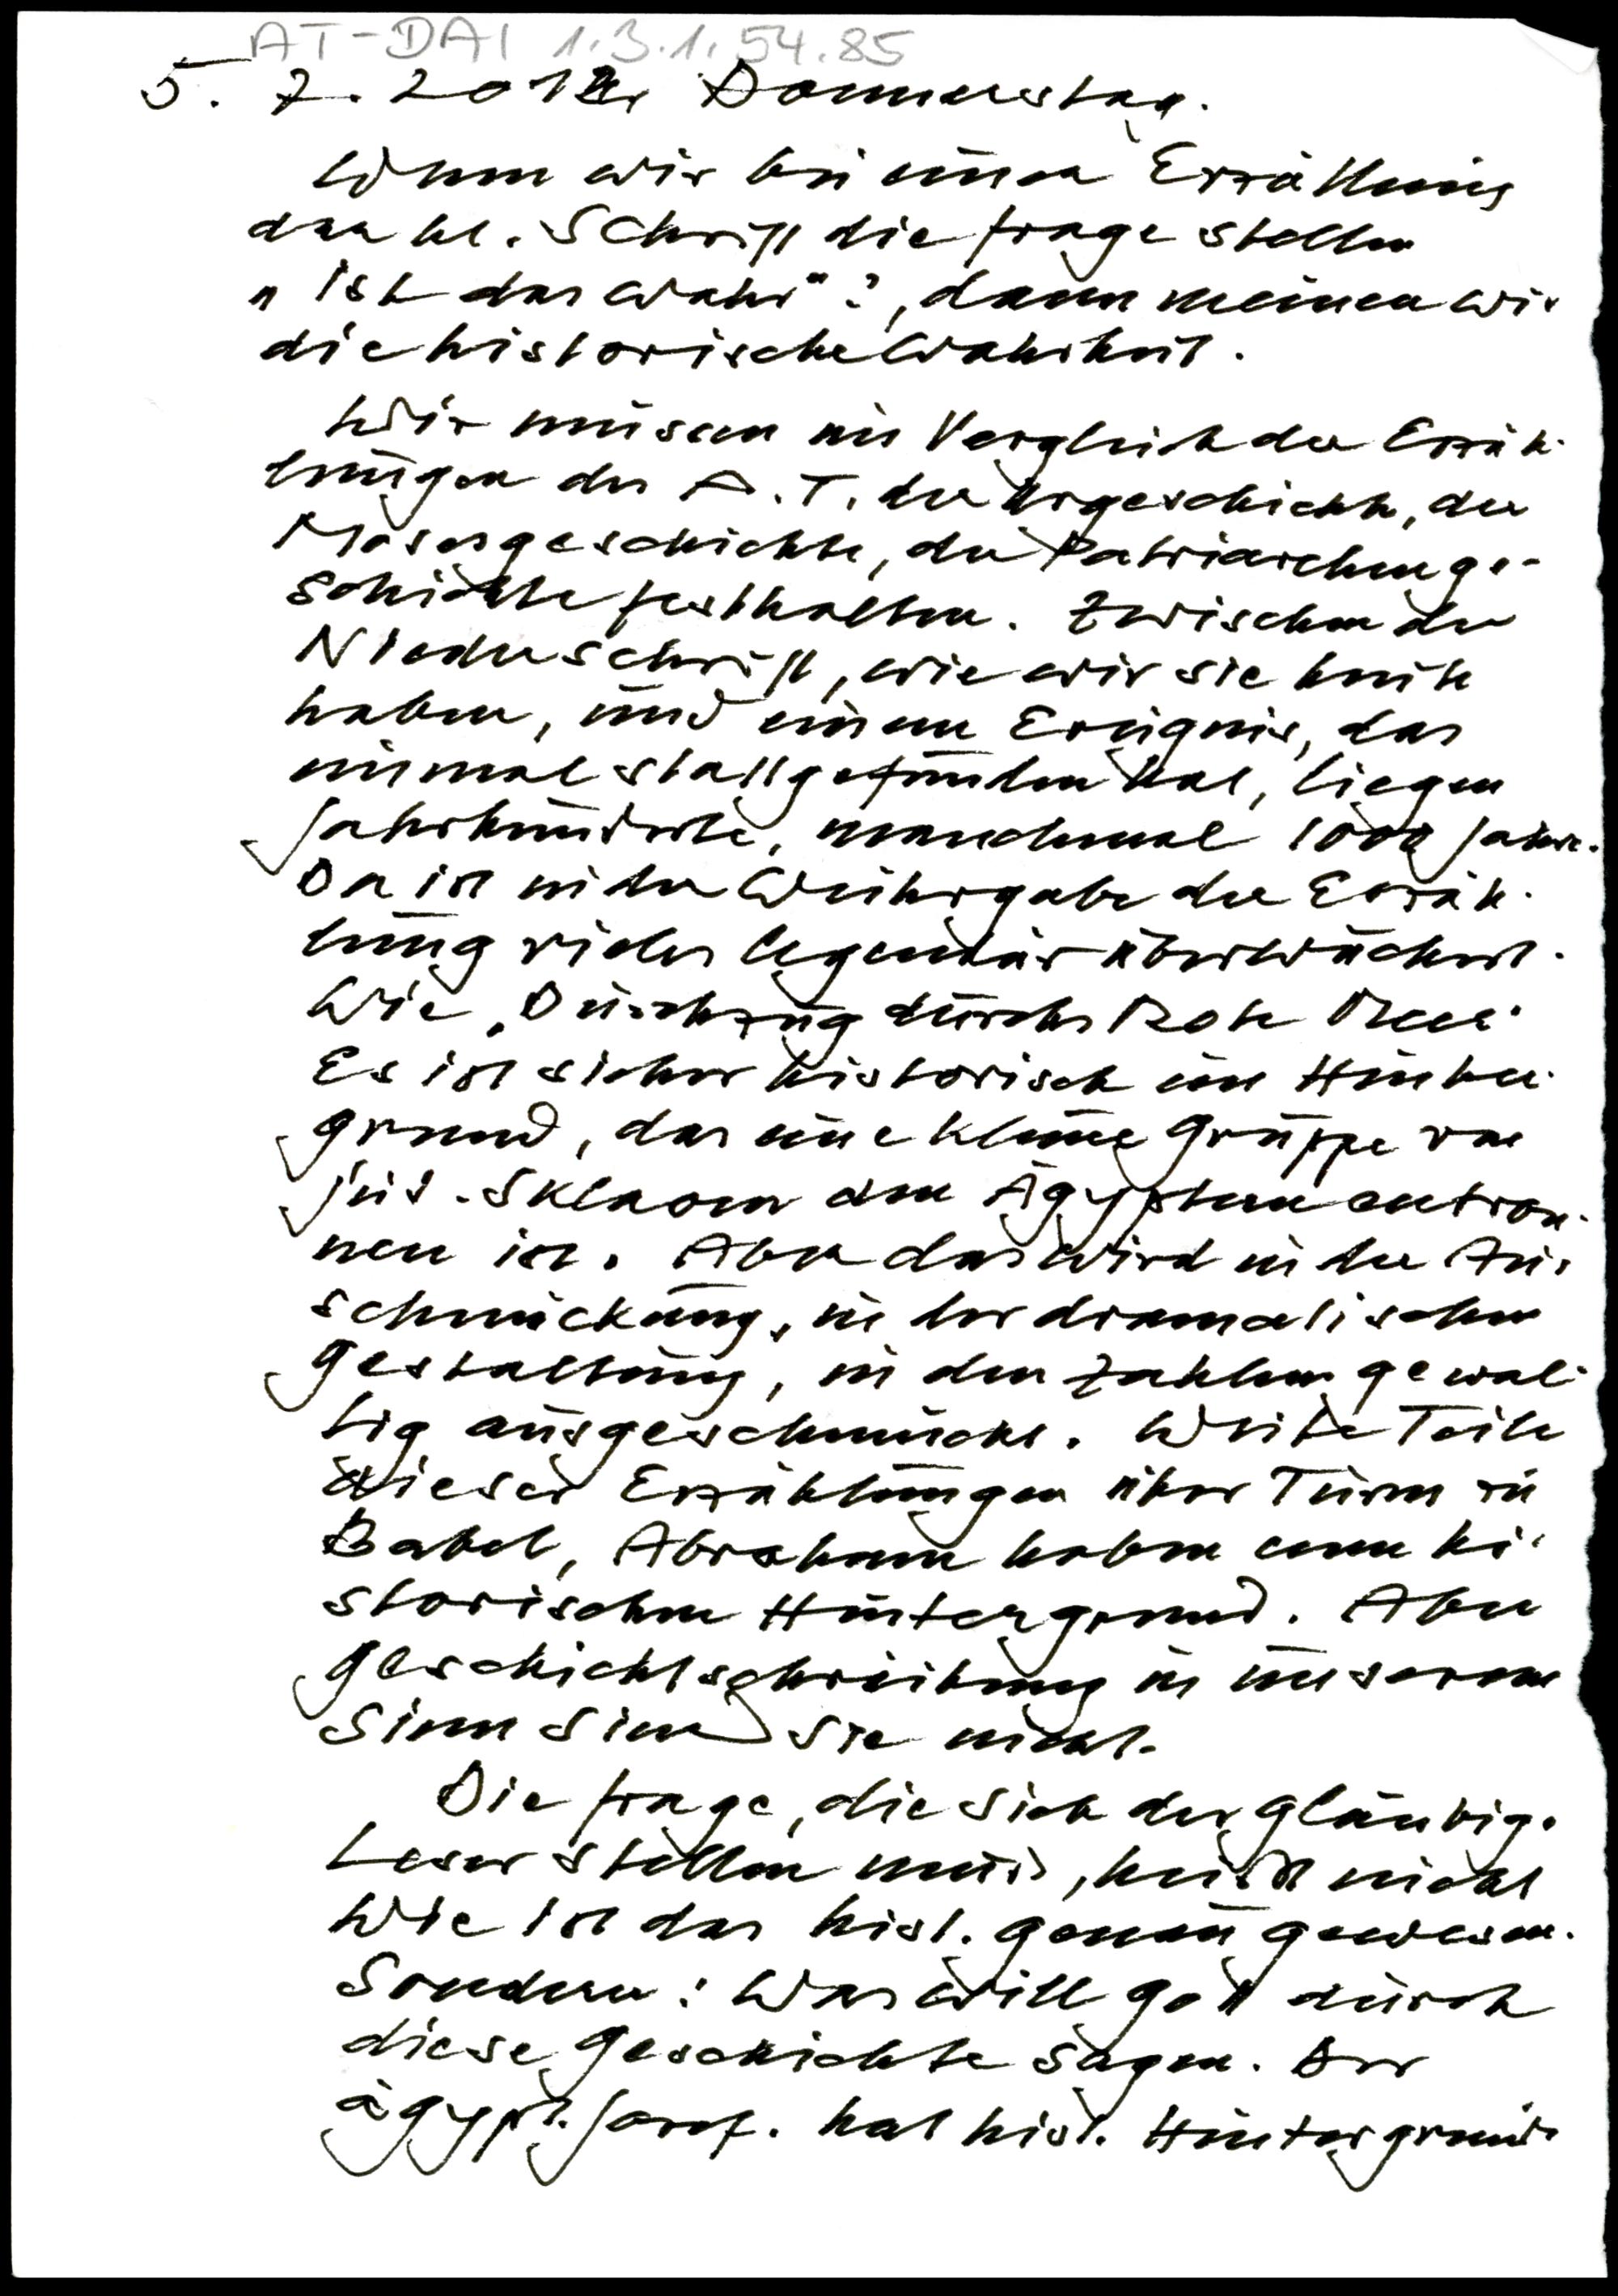 AT-DAI 1.3.1.54.85
5. 7. 2012 Donnerstag.
Wenn wir bei einer Erzählung
der hl. Schrift die Frage stellen
„Ist das wahr"?, dann meinen wir
die historische Wahrheit.
Wir müssen im Vergleich der Erzäh-
lungen des A.T. der Urgeschichte, der
Mosesgeschichte, der Patriarchenge-
schichte festhalten. Zwischen der
Niederschrift, wie wir sie heute
haben, und einem Ereignis, das
einmal stattgefunden hat, liegen
Jahrhunderte, manchmal 1000 Jahre.
Da ist in der Weitergabe der Erzäh-
lung vieles legendär überwuchert.
Wie „Durchzug durchs Rote Meer"
Es ist sicher historisch im Hinter-
grund, das eine kleine Gruppe von
jüd. Sklaven den Ägyptern entron-
nen ist. Aber das wird in der Aus-
schmückung, in der dramatischen
Gestaltung, in den Zahlen gewal-
tig ausgeschmückt. Weite Teile
dieser Erzählungen über Turm zu
Babel, Abraham haben einen hi-
storischen Hintergrund. Aber
Geschichtsschreibung in unserem
Sinn sind sie nicht.
Die Frage, die sich der gläubige
Leser stellen muss, heißt nicht
Wie ist das hist. genau gewesen.
Sondern: Was will Gott durch
diese Geschichte sagen. Der
ägypt. Josef. hat hist. Hintergrund